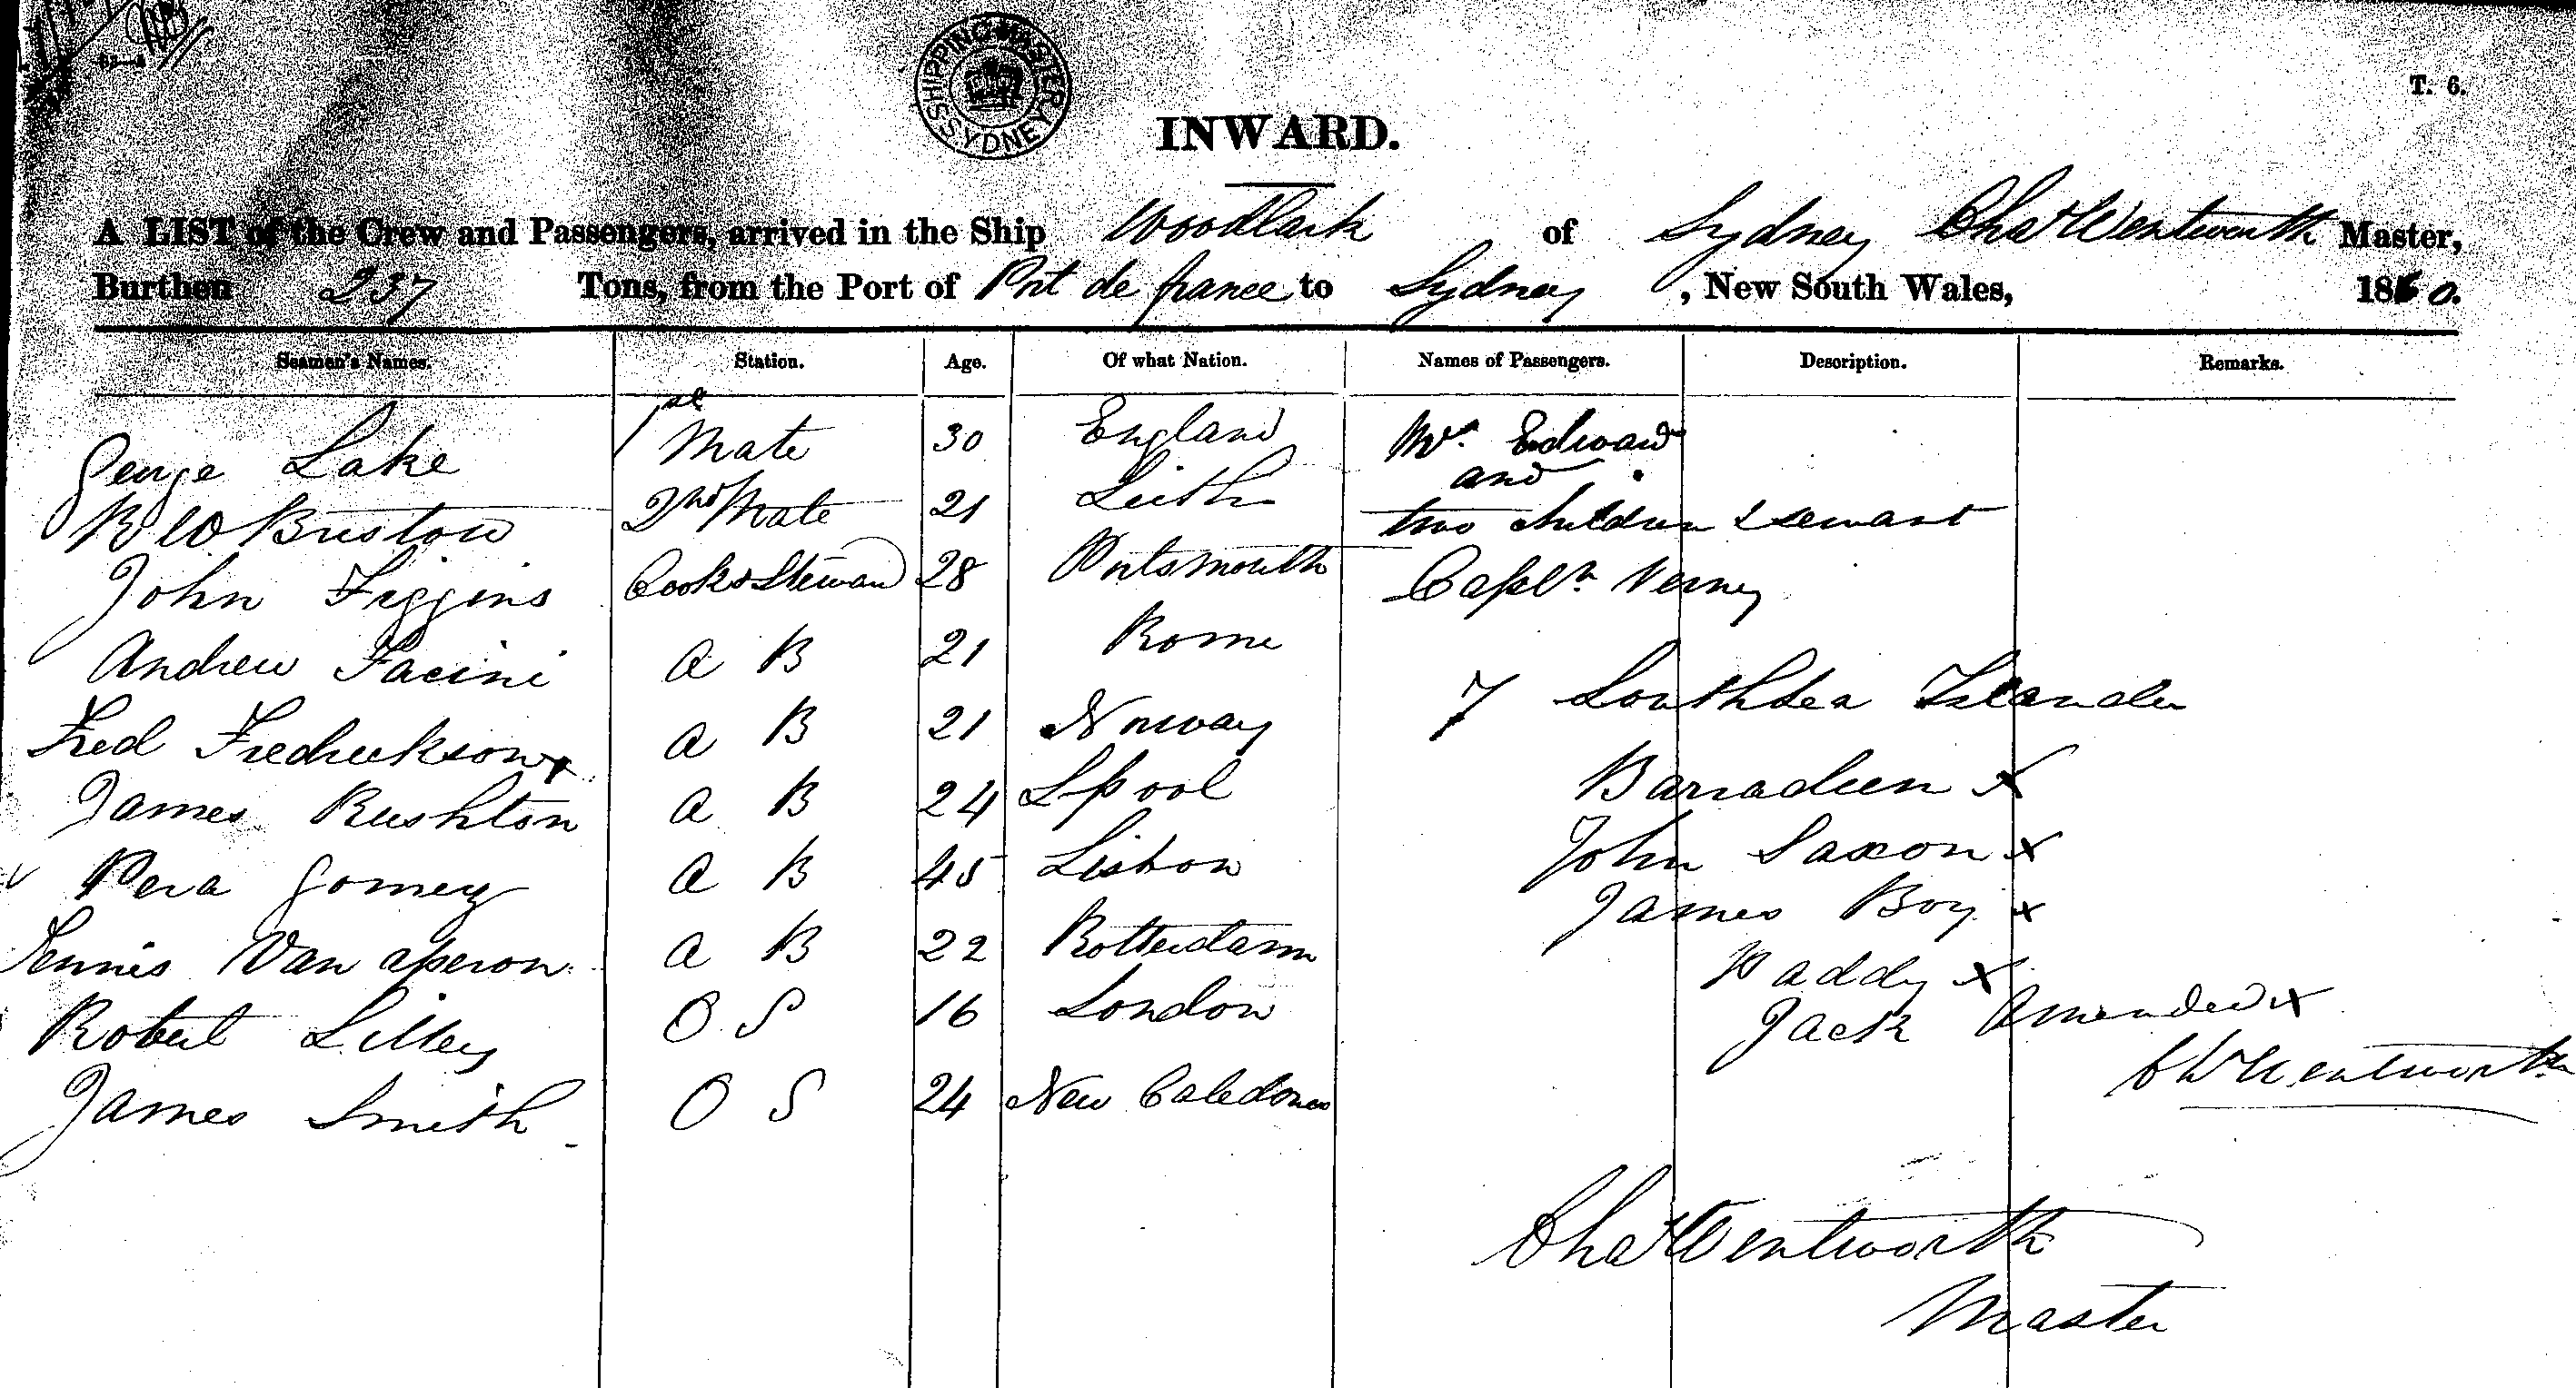 SHIPPING MASTER SYDNEY
T. 6.
INWARD.
A LIST of the Crew and Passengers, arrived in the Ship Woodlark of Sydney Chas Wentworth Master,
Burthen 237 Tons, from the Port of Port de france to Sydney, New South Wales, 1860.
Seamen's Names. Station. Age. Of what Nation. Names of Passengers. Description. Remarks.
George Lake 1st Mate 30 England Mr. Edward
and
R W Bristow 2nd Mate 21 Leith two children & servant
John Figgins Cook & Steward 28 Portsmouth Captn. Verney
Andrew Facini A B 21 Rome
7 South Sea Islander
Fred Fredrickson x A B 21 Norway
James Rushton A B 24 Lpool Barradeen x
Pera Gomez A B 45 Lisbon John Saxon x
James Boy x
Tennis Van aperon A B 22 Rotterdam Paddy x
Robert Lilley O S 16 London Jack Amended x
James Smith O S 24 New Caledonia Ch Wentworth
Chas Wentworth
Master